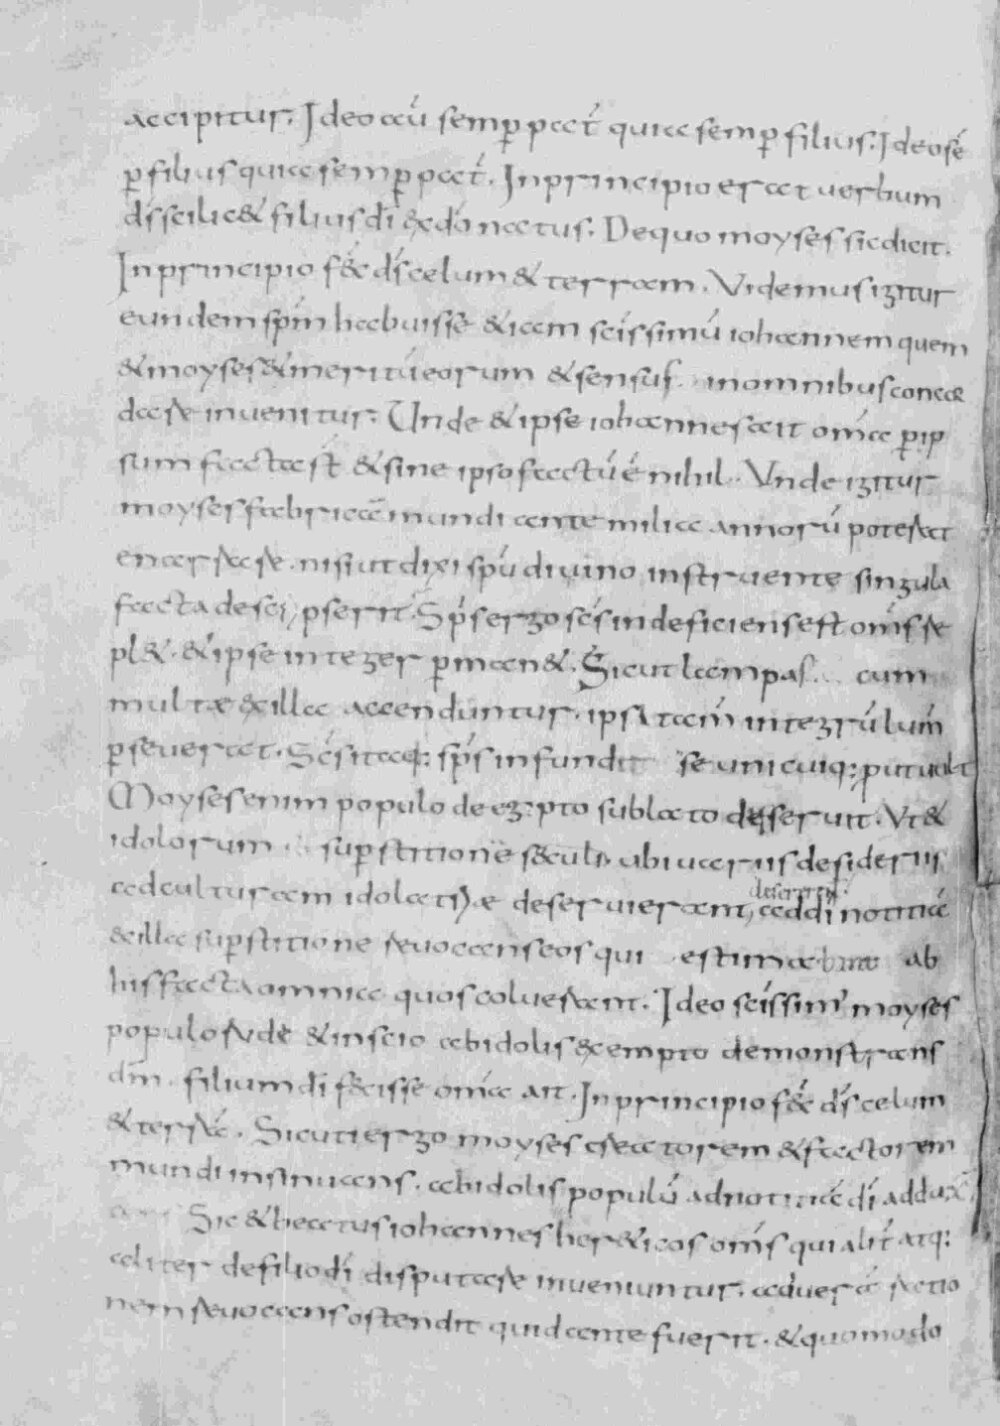 accipitur. Ideo cū semp̄ pat̄ quia semp̄ filius. Ideo sē
p̄ filius quia semp̄ pat̄. In principio erat uerbum
d̄s scilic& filius dī ex dō natus. De quo moyses sic dicit.
In principio fec̄ d̄s celum & terram. Videmus igitur
eundem sp̄m habuisse &iam sc̄issimū iohannem quem
& moyses & meritū eorum & sensus in omnibus concor
dare inuenitur. Unde & ipse iohannes ait om̄ia p̄ ip
sum facta st̄ & sine ipso factū ē nihil. Vnde igitur
moyses fabricā mundi ante milia annorū potera&
enarrare. nisi ut dixi sp̄u diuino instruente singula
facta descripserit. Sp̄s ergo sc̄s indeficiens est om̄s re
pl&. & ipse integer p̄man&. Sicut lampas cum
multæ ex illa accenduntur. ipsa tam̄ integrū lum̄
p̄seuerat. Sc̄s itaq; sp̄s infundit se unicuiq; put uolt
Moyses enim populo de egypto sublato deseruit. Vt &
idolorum sup̄stitione sęculi ubi uariis desideriis
ad culturam idolatriæ deseruierant, ad dī notitiā
ex illa sup̄stitione reuocans eos qui estimaba ab
his facta omnia quos coluerant. Ideo sc̄issim' moyses
populo rude & inscio ab idolis exempto demonstrans
dm̄. filium dī fecisse om̄ia ait. In principio fec̄ d̄s celum
& terrā. Sicuti ergo moyses creatorem & factorem
mundi insinuans. ab idolis populū ad notitiā dī adduxit
Sic & beatus iohannes her&icos om̄s qui alit̄ atq;
aliter de filio dī disputare inueniuntur. ad uerā ratio
nem reuocans ostendit quid ante fuerit. & quomodo